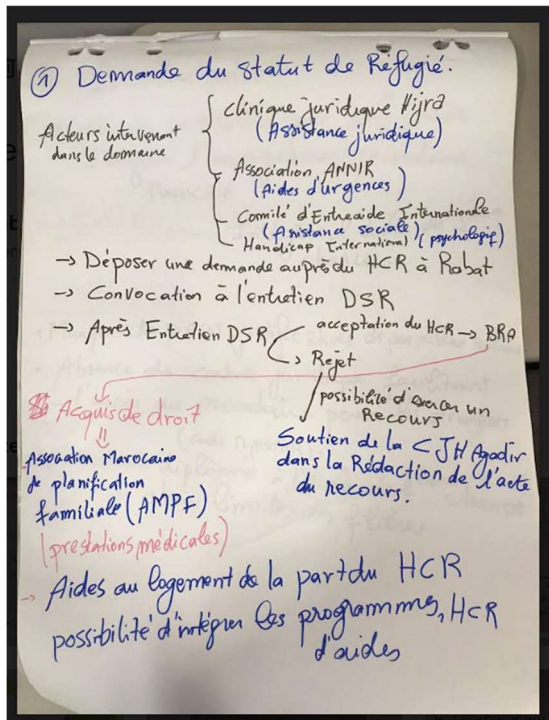 ① Demande du statut de Réfugié.
Acteurs intervenant
dans le domaine
clinique juridique Hijra
(Assistance juridique)
Association ANNIR
(Aides d'urgences)
- Comité d'Entreaide Internationale
(Assistance sociale)
- Handicap International (psychologiq)
→ Déposer une demande auprès du HCR à Rabat
→ Convocation à l'entretien DSR
→ Après Entretien DSR
acceptation du HCR → BRA
↳ Rejet
possibilité d'exercer un
Recours
Acquis de droit
⇓
Association Marocaine
de planification
familiale (AMPF)
(prestations médicales)
Soutien de la CJH Agadir
dans la Rédaction de l'acte
du recours.
→ Aides au logement de la part du HCR
possibilité d'intégrer les programmes, HCR
d'aides